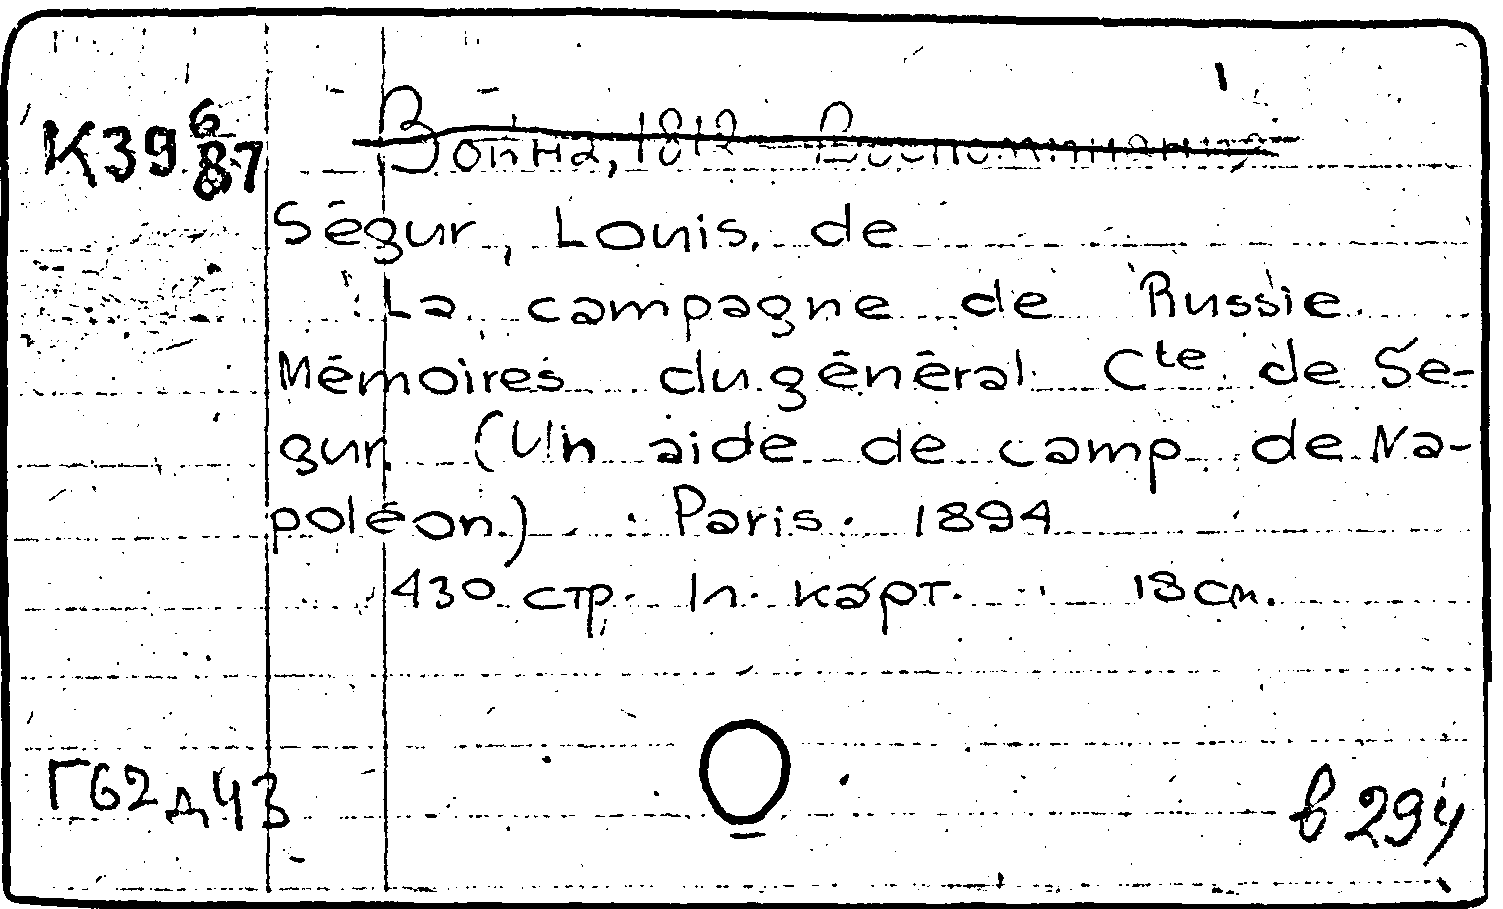 К39 6/87
Война, 1812 Воспоминания
Ségur, Louis, de
La campagne de Russie.
Mémoires du général Cte de Sé-
gur. (Un aide de camp de Na-
poléon). Paris. 1894
430 стр. 1п. карт. 18 см.
Г62д43
в 294